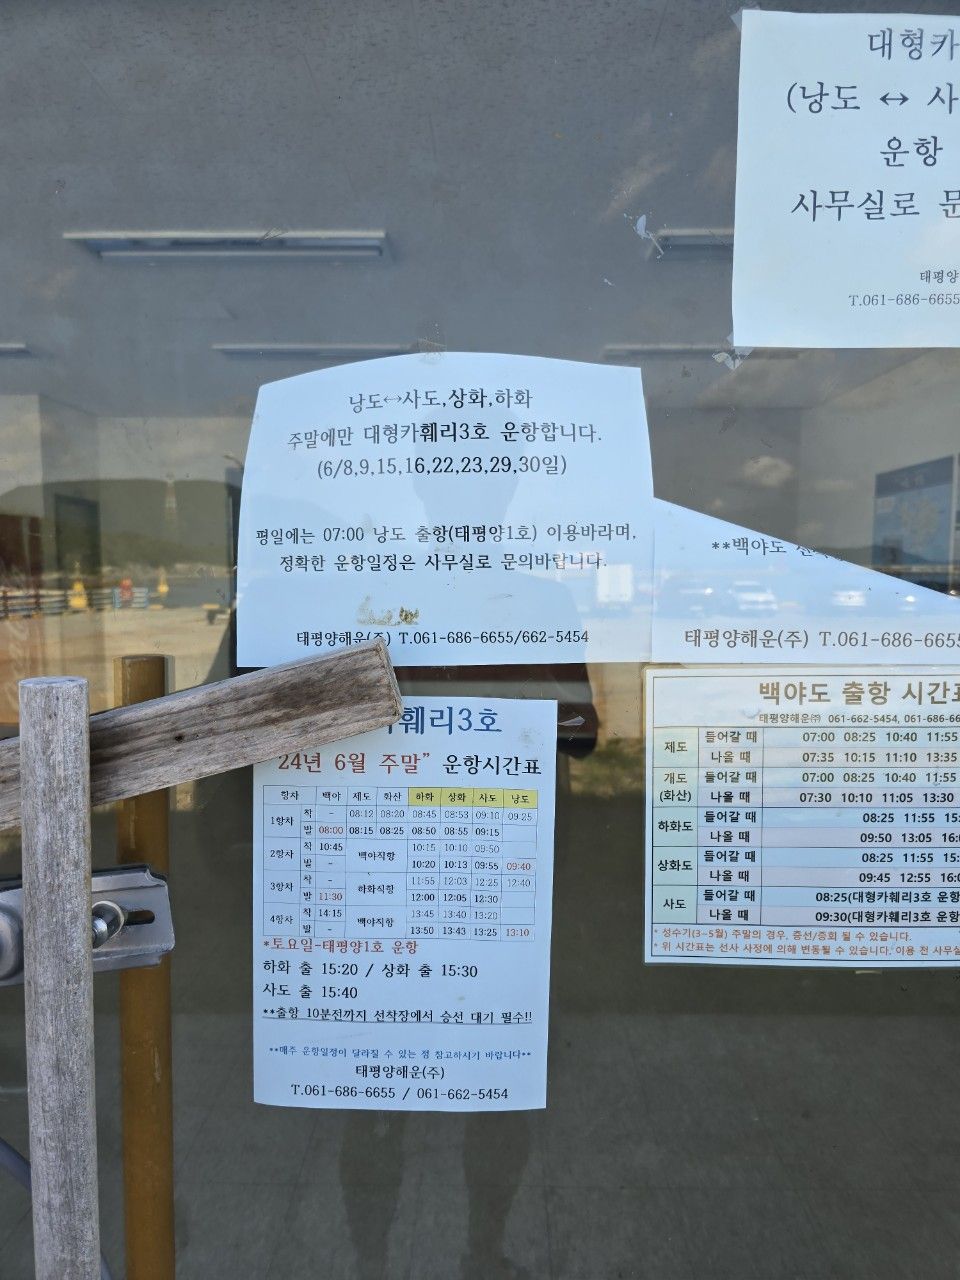 대형카
(낭도 ↔ 사
운항
사무실로 문
태평양
T.061-686-6655
낭도↔사도,상화,하화
주말에만 대형카훼리3호 운항합니다.
(6/8,9,15,16,22,23,29,30일)
평일에는 07:00 낭도 출항(태평양1호) 이용바라며,
정확한 운항일정은 사무실로 문의바랍니다.
태평양해운(주) T.061-686-6655/662-5454
**백야도
태평양해운(주) T.061-686-6655
훼리3호
24년 6월 주말" 운항시간표
항차 백야 제도 화산 하화 상화 사도 낭도
1항차 착 - 08:12 08:20 08:45 08:53 09:10 09:25
발 08:00 08:15 08:25 08:50 08:55 09:15
2항차 착 10:45 백야직항 10:15 10:10 09:50
발 - 10:20 10:13 09:55 09:40
3항차 착 - 하화직항 11:55 12:03 12:25 12:40
발 11:30 12:00 12:05 12:30
4항차 착 14:15 백야직항 13:45 13:40 13:20
발 13:50 13:43 13:25 13:10
*토요일-태평양1호 운항
하화 출 15:20 / 상화 출 15:30
사도 출 15:40
**출항 10분전까지 선착장에서 승선 대기 필수!!
**매주 운항일정이 달라질 수 있는 점 참고하시기 바랍니다**
태평양해운(주)
T.061-686-6655 / 061-662-5454
백야도 출항 시간표
태평양해운㈜ 061-662-5454, 061-686-66
제도 들어갈 때 07:00 08:25 10:40 11:55
나올 때 07:35 10:15 11:10 13:35
개도 (화산) 들어갈 때 07:00 08:25 10:40 11:55
나올 때 07:30 10:10 11:05 13:30
하화도 들어갈 때 08:25 11:55 15:
나올 때 09:50 13:05 16:0
상화도 들어갈 때 08:25 11:55 15:
나올 때 09:45 12:55 16:0
사도 들어갈 때 08:25(대형카훼리3호 운항
나올 때 09:30(대형카훼리3호 운항
* 성수기(3-5월) 주말의 경우, 증선/증회 될 수 있습니다.
* 위 시간표는 선사 사정에 의해 변동될 수 있습니다. 이용 전 사무실